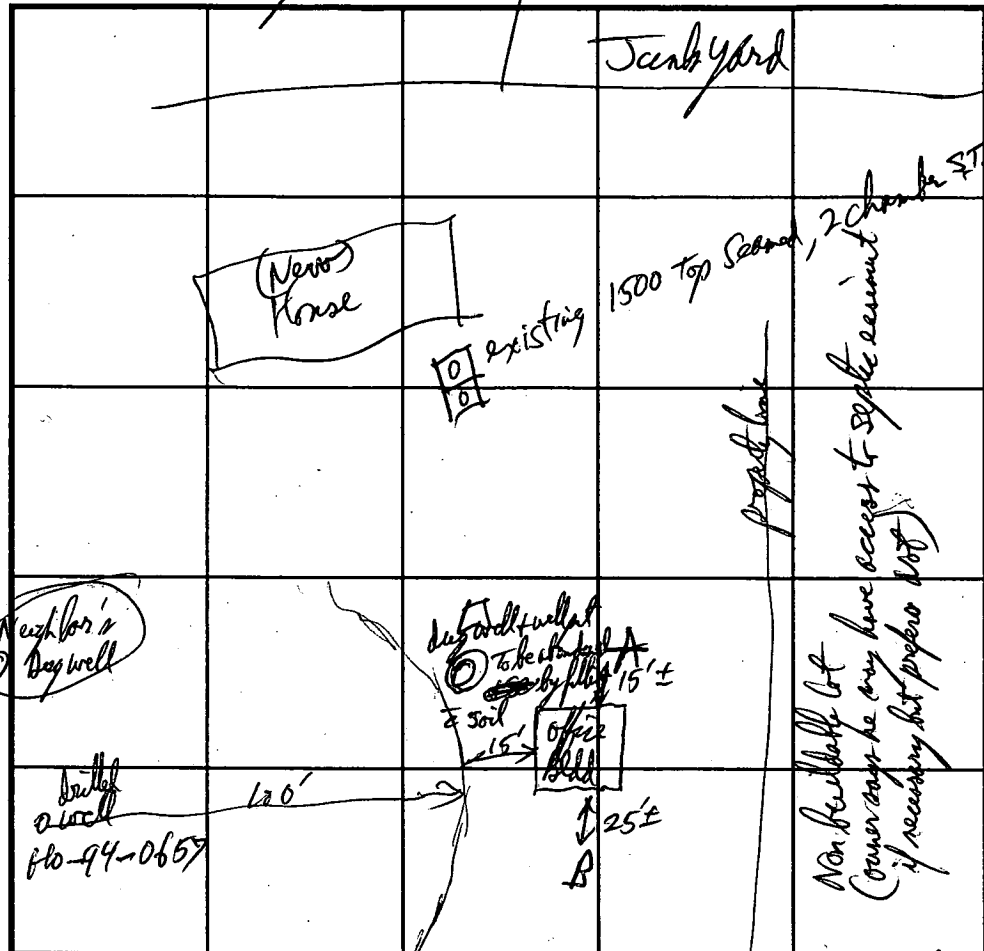 Junkyard
(New)
House
existing 1500 Top Seamed, 2 chamber S.T.
O
O
property line
Non buildable lot
(owner says he may have access to septic easement
if necessary but prefers not)
Neighbor's
Dug well
dug well + well pit
To be abandoned
by filling
c soil
A
15'±
15'
office
Bldd
drilled
well
Ho-94-0657
100'
25'±
B